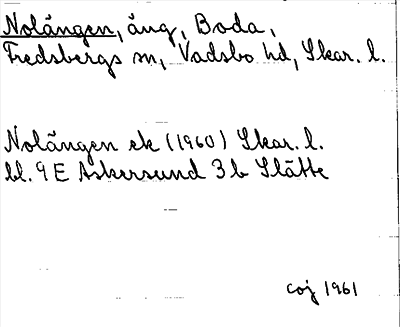 Nolängen, äng, Boda,
Fredsbergs sn, Vadsbo hd, Skar. l.
Nolängen ek (1960) Skar. l.
bl. 9 E Askersund 3 b Slätte
coj 1961